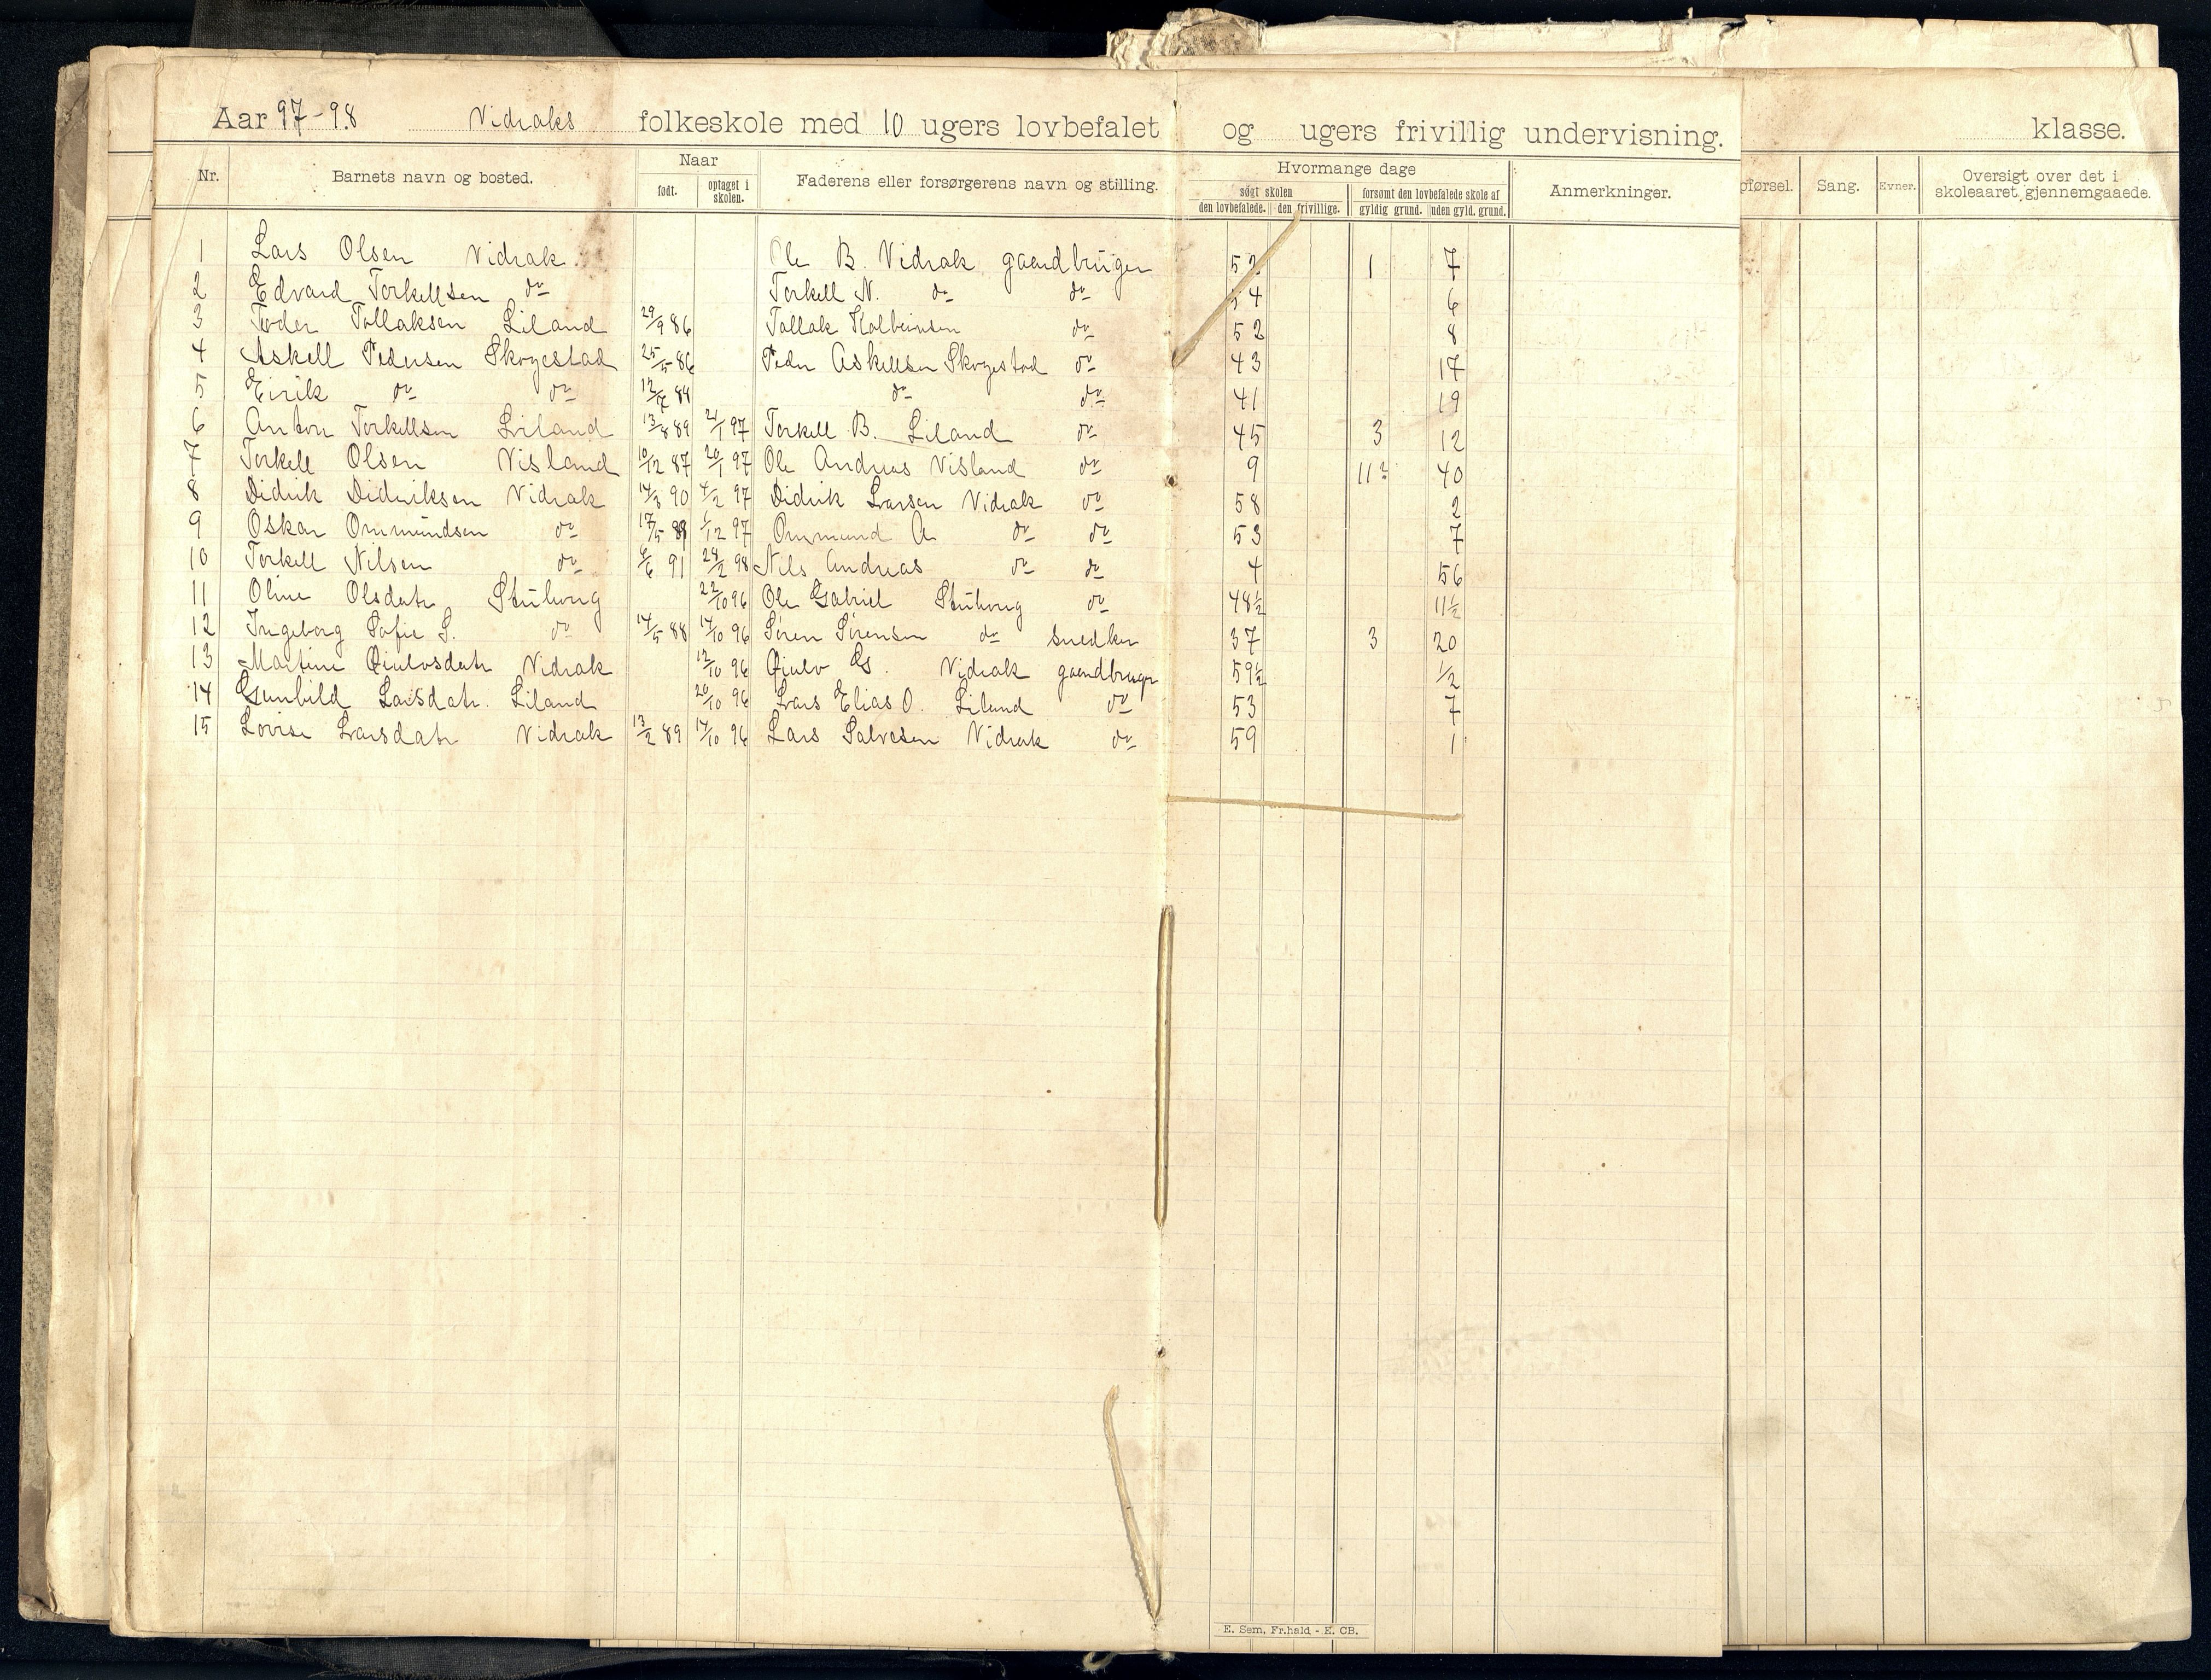 Aar 97-98 Vidraks folkeskole med 10 ugers lovbefalet og ugers frivillig undervisning. klasse.
Nr. Barnets navn og bosted. Naar født. optaget i skolen. Faderens eller forsørgerens navn og stilling. Hvormange dage søgt skolen den lovbefalede. den frivillige. forsømt den lovbefalede skole af gyldig grund. uden gyld. grund. Anmerkninger. pførsel. Sang. Evner. Oversigt over det i skoleaaret gjennemgaaede.
1 Lars Olsen Vidrak Ole B. Vidrak gaardbruger 52 1 7
2 Edvard Torkellsen do Torkell N. do do 54 6
3 Peder Tollaksen Liland 29/9 86 Tollak Kolbeinsen do 52 8
4 Askell Pedersen Skogestad 25/5 86 Peder Askellsen Skogestad do 43 17
5 Eirik do do 84 do do 41 19
6 Anton Torkellsen Liland 13/8 89 21/1 97 Torkell B. Liland do 45 3 12
7 Torkell Olsen Visland 10/12 87 20/1 97 Ole Andreas Visland do 9 11 40
8 Didrik Didriksen Vidrak 14/3 90 4/2 97 Didrik Larsen Vidrak do 58 2
9 Oskar Ommundsen do 17/5 89 1/12 97 Ommund A. do do 53 7
10 Torkell Nilsen do 6/6 91 24/2 98 Nils Andreas do do 4 56
11 Oline Olsdatr Stuhoug 22/10 96 Ole Gabriel Stuhoug do 48½ 11½
12 Ingeborg Sofie S. do 14/5 88 14/10 96 Søren Sørensen do snedker 37 3 20
13 Martine Øiulvsdatr Vidrak 12/10 96 Øiulv Vidrak gaardbruger 59½ ½
14 Gunhild Larsdatr. Liland 20/10 96 Lars Elias O. Liland do 53 7
15 Lovise Larsdatr Vidrak 13/2 89 14/10 96 Lars Salvesen Vidrak do 59 1
E. Sem, Fr.hald - E. CB.